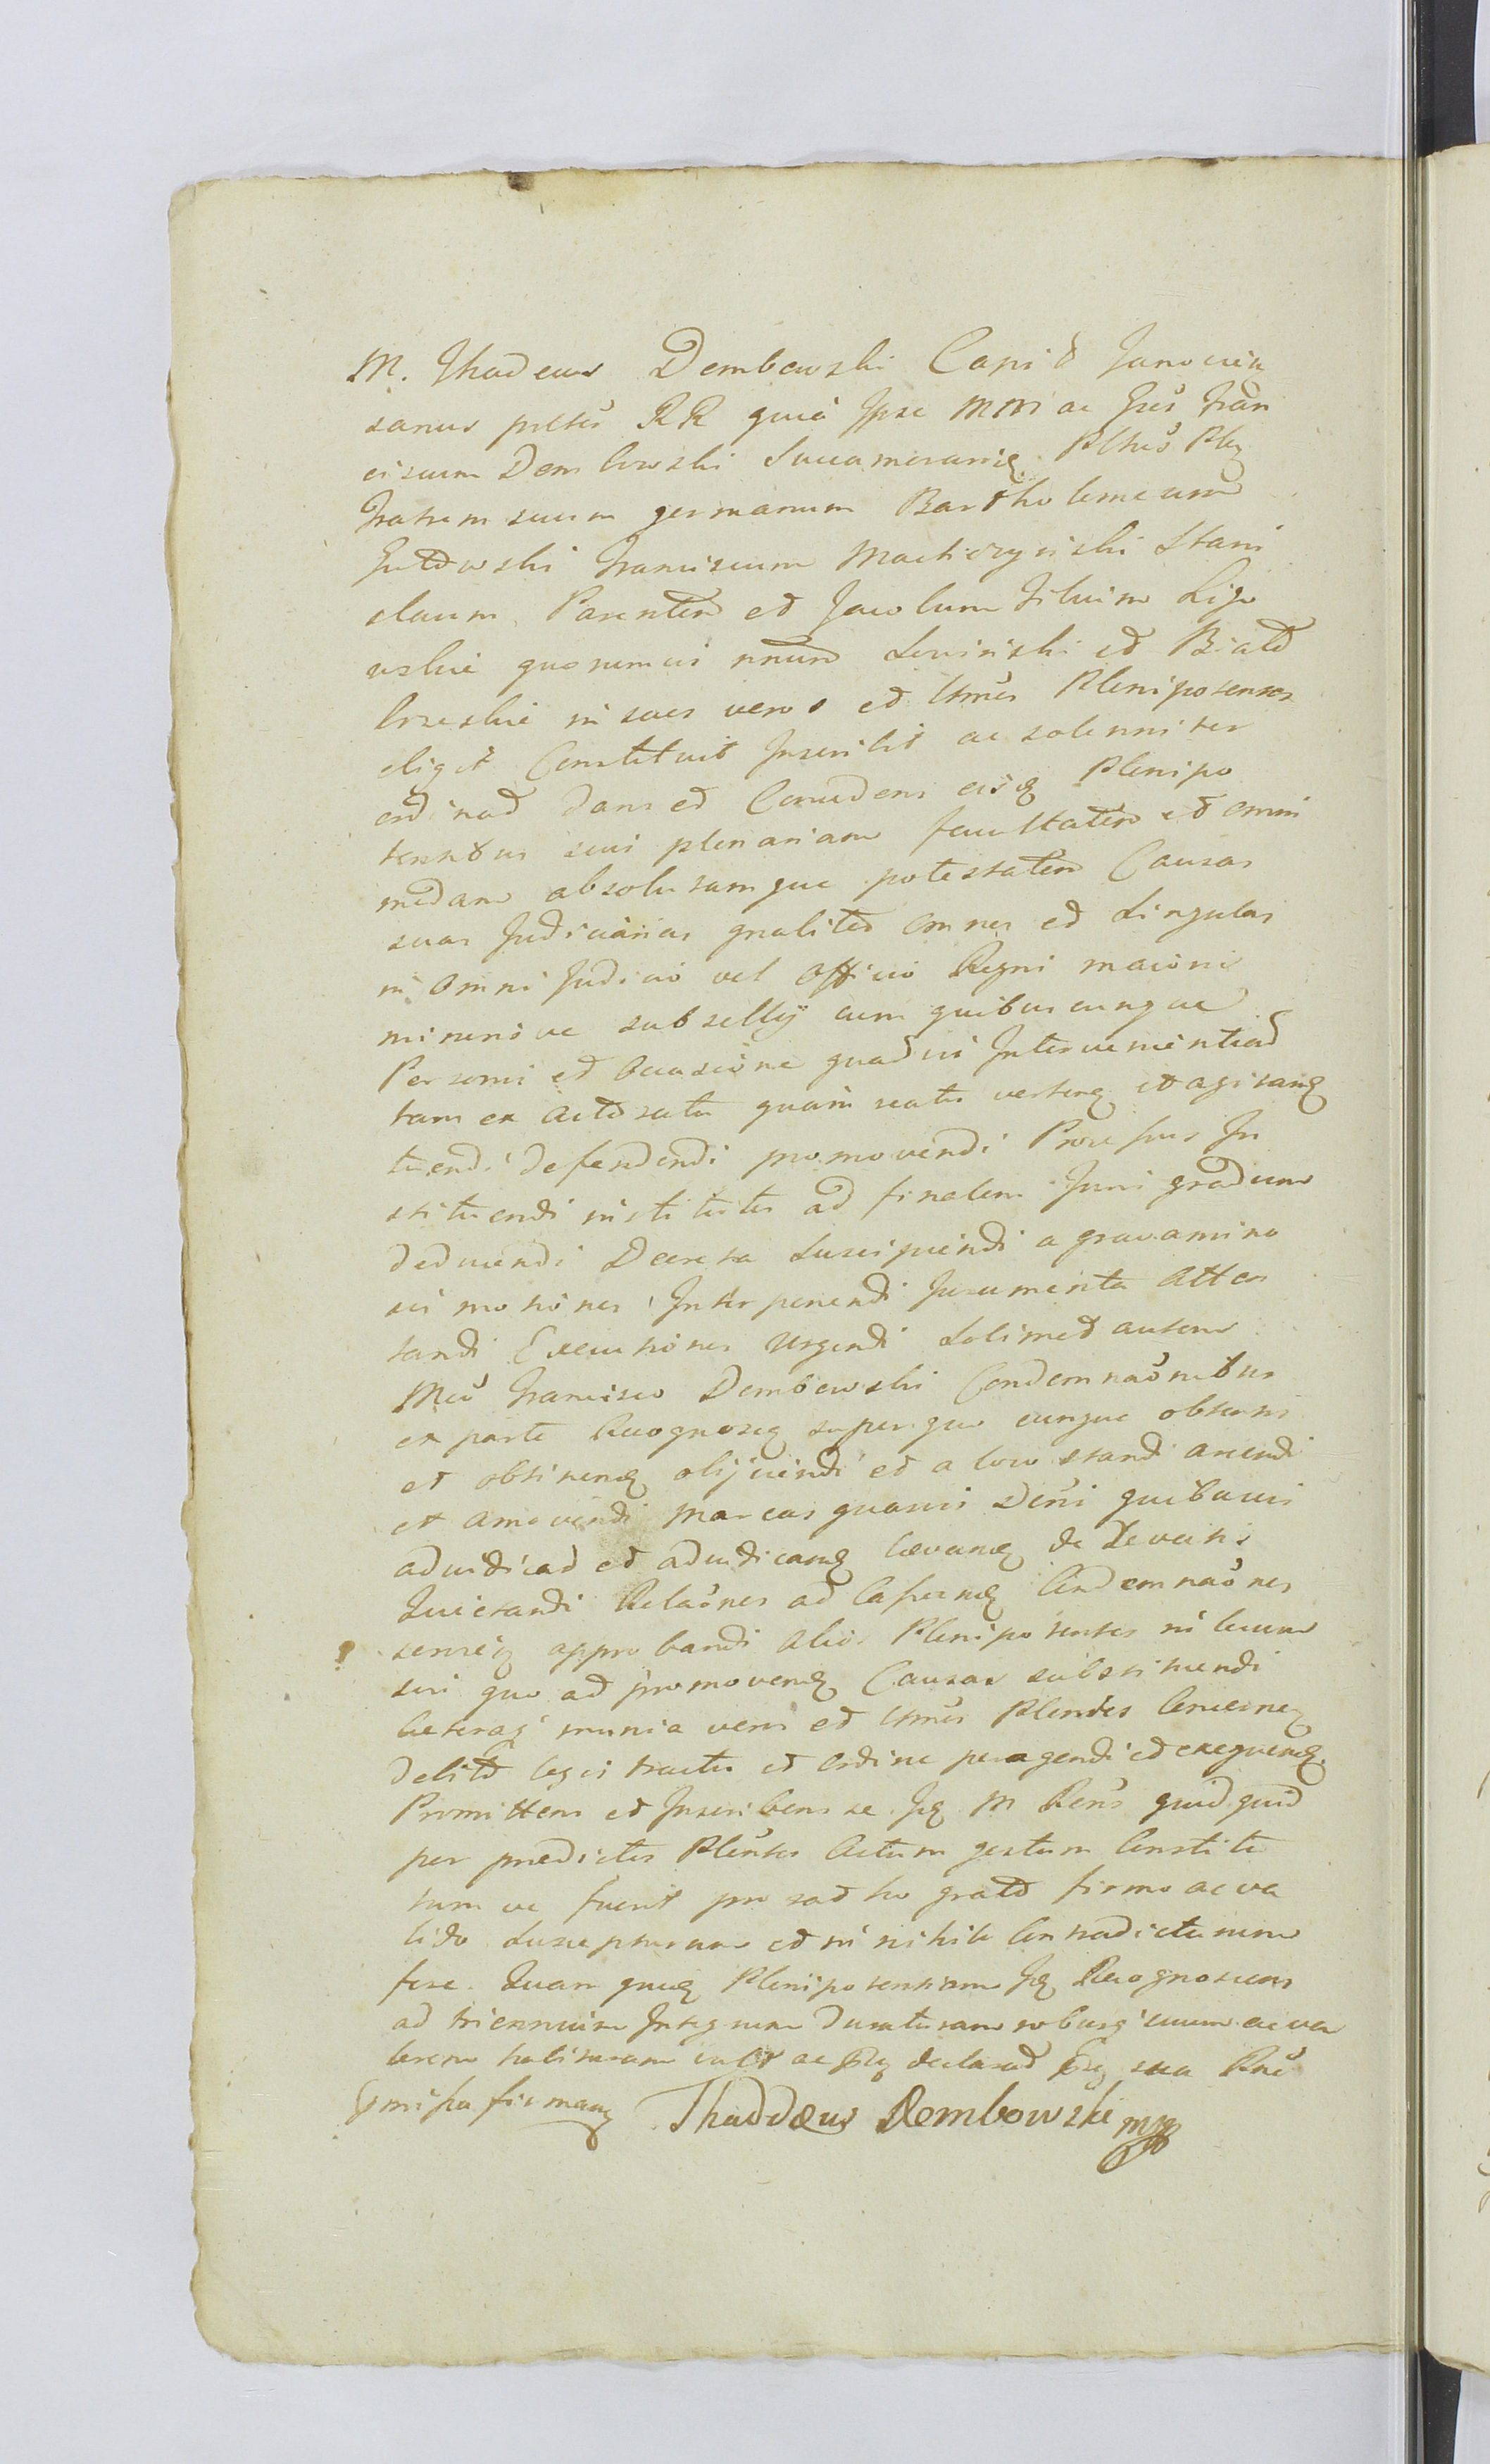 M. Thadeus Dembowski Capit Janovien
sanus pnlter RR quia Ipse MM ac Gros Fran
ciscum Dembowski Succamerarig Pltus
fratrem suum germanum Bartholomeum
Franciscum Mactiozynski Stani
slaum Parentem et Jacobum Filium Ligo
wskie quorumvis nnum Lewinski et Biało
brzeskie in suos veros et ltmos Plenipotentes
eligit Constituit Inscribit ac solenniter
ordinat dans et Concedens eisq Plenipo
tentibus suis plenariam facultatem et omni
modam absolutamque potestatem Causas
suas Judiciarias qualiter omnes et Singulas
in omni Judicio vel Officio Regni maioris
minorisve subsellij cum quibuscunque
Personis et occasione quavis Intervenientiad
tam ex actoratu quam reatu verteng et agitang
tuendi defendendi promovendi Processus In
stituendi institutos ad finalem Juris gradum
deducendi Decreta Suscipiendi a gravamino
sis motiones Interponendi Juramenta Attes
tandi Executiones Urgendi Solimet autem
Mco Francisco Dembowski Condemnaonibus
ex parte Recognoscg superquocunque obtentis
et obtineng obijciendi et a loco standi arcendi
et amovendi Marcas quasvis Dni quibusvis
adiudicad et adiudicang levang de Levatis
Quietandi Relaones ad Capieng Condemnaones
serviq approbandi alios Plenipotentes in locum
sui quo ad promoveng Causas substituendi
Caeteraq munia veris et ltmis Plentes Concerneng
debito legis tractu et ordine peragendi et exequeng
Promittens et Inscribens se Iq M Rens quidquid
per praedictos Plentes Actum gestum Constitu
tum ve fuerit pro rato grato firmo ac va
lido Suscepturum et in nihilo Contradicturum
fore. Quam quiq Plenipotentiam Iq Recognoscens
ad triennium Integrum duraturam roburq suum ac va
lorem habituram vult ac declarat sua Rne
firmang Thaddæus Dembowski mp